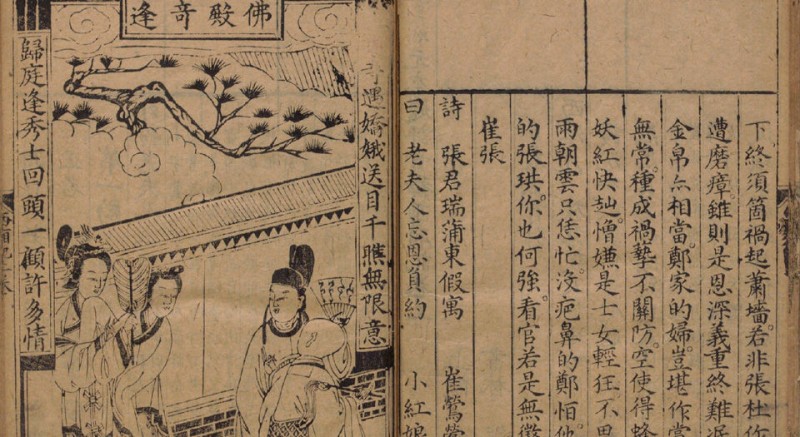 下終須箇禍起蕭墻。若非張杜作
遭磨瘴。錐則是恩深義重終難
金帛亾相當。鄭家的婦豈堪作
無常。種成禍孽不關防。空使得
妖紅快赸。憎嫌是士女輕狂。不思
雨朝雲只恁忙。沒疤鼻的鄭怕他
的張珙。你也何強。看官若是無
崔張
詩 張君瑞蒲東假寓 崔鶯鶯
曰 老夫人忘恩負約 小紅娘
佛殿奇逢
遇嬌娥送目千瞧無限意
歸庭逢秀士回頭一顧許多情